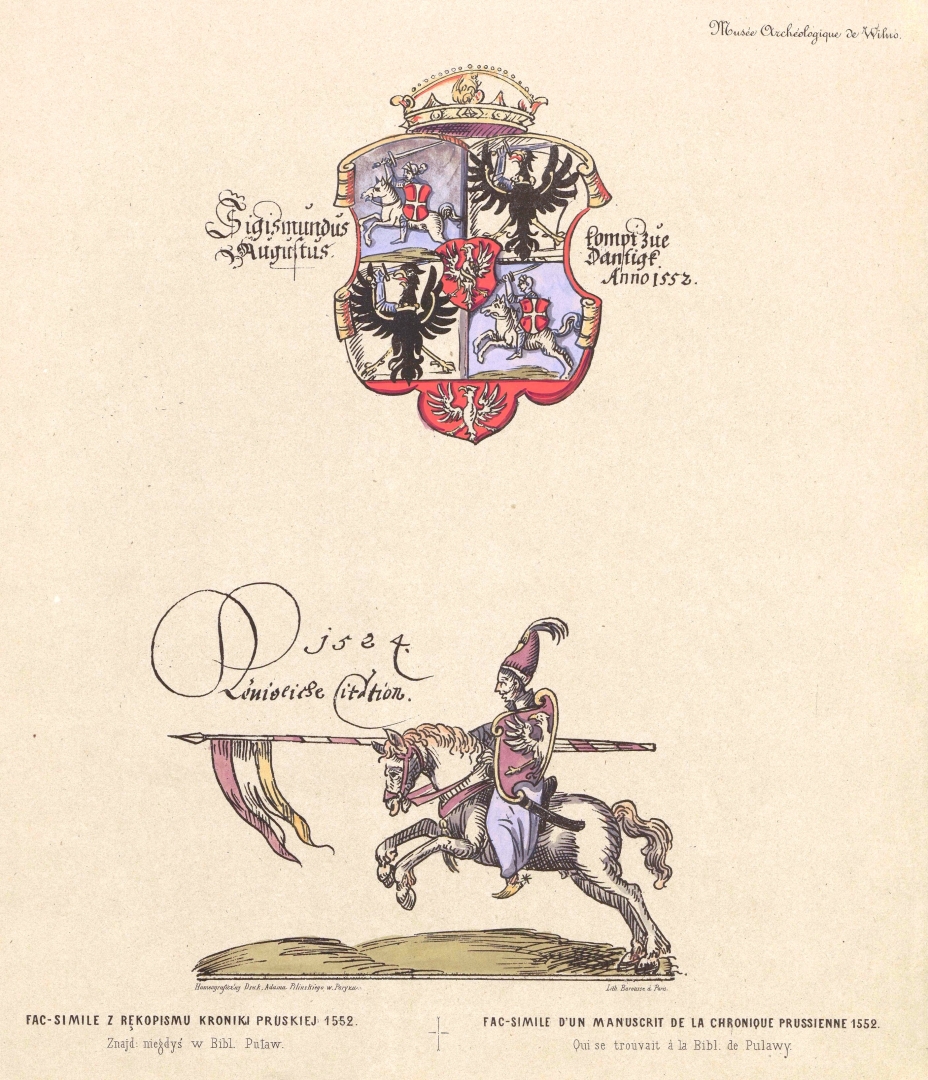 Musée Archéologique de Wilno.
Sigismundus
Augustus.
kompt zue
Dantigk
Anno 1552.
1524.
Königliche Citation.
Homeografczny Druk, Adama Pilinskiego w Paryzu.
Lith. Barousse à Paris.
FAC-SIMILE Z RĘKOPISMU KRONIKI PRUSKIEJ 1552.
Znajd: niegdyś w Bibl. Puław.
FAC-SIMILE D'UN MANUSCRIT DE LA CHRONIQUE PRUSSIENNE 1552.
Qui se trouvait à la Bibl. de Pulawy.